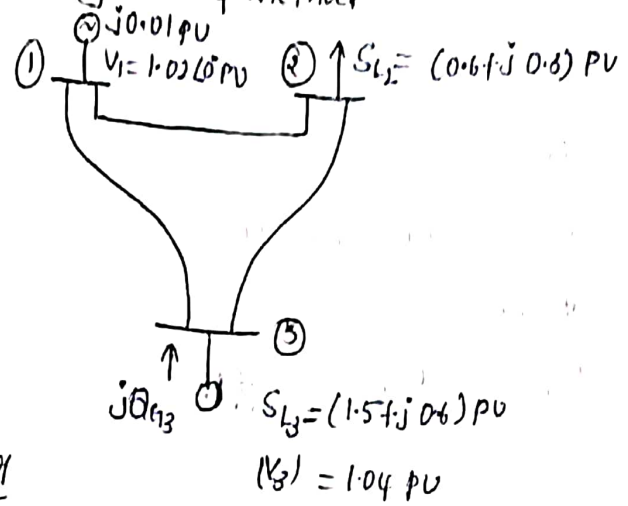 j0.01pu
① V₁ = 1.02∠0° PU
② S_L₂ = (0.6+j 0.8) PU
③
jQ_G3
S_L3 = (1.5+j 0.6) PU
|V₃| = 1.04 PU